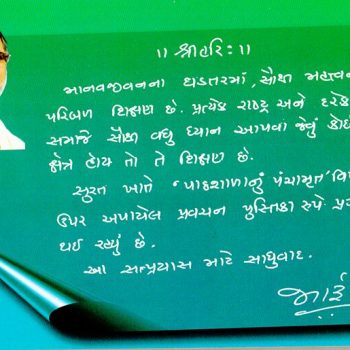 ।। શ્રીહરિઃ ।।
માનવજીવનના ઘડતરમાં, સૌથી
પરિબળ શિક્ષણ છે. પ્રત્યેક રાષ્ટ્ર અને દરેક
સમાજે સૌથી વધુ ધ્યાન આપવા જેવું કોઇ
ક્ષેત્ર હોય તો તે શિક્ષણ છે.
સુરત ખાતે "પાઠશાળાનું પંચામૃત"
ઉપર અપાયેલ પ્રવચન પુસ્તિકા રૂપે
થઈ રહ્યું છે.
આ સત્પ્રયાસ માટે સાધુવાદ.